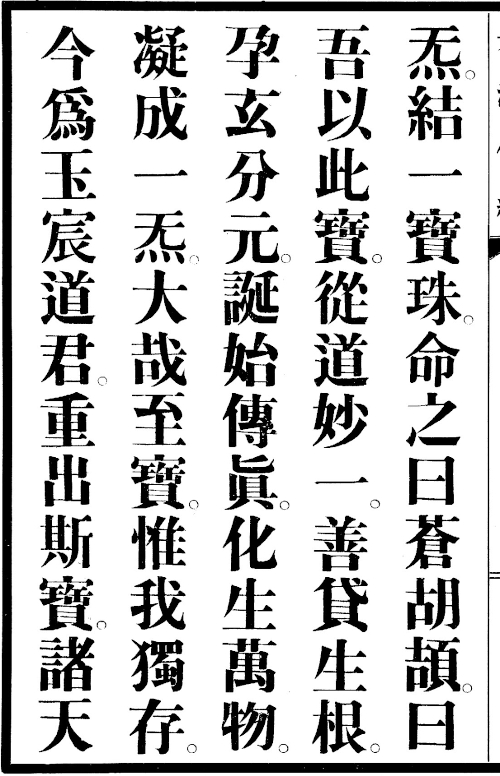 炁。結一寶珠。命之曰蒼胡頡。曰
吾以此寶。從道妙一。善貸生根。
孕玄分元。誕始傳眞。化生萬物。
凝成一炁。大哉至寶。惟我獨存。
今爲玉宸道君。重出斯寶。諸天